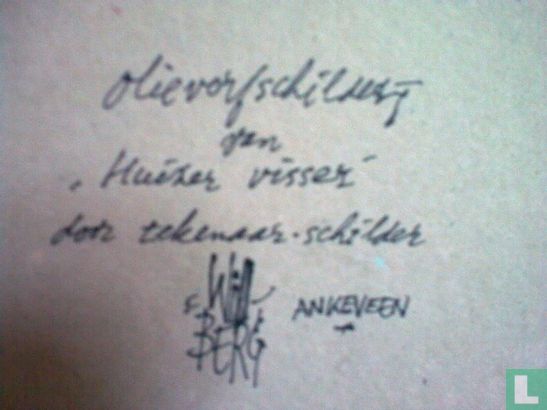 olieverfschilderij
van
„Huizer visser"
door tekenaar-schilder
Will ANKEVEEN
BERG
L